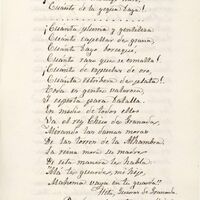 ¡Cuánto de la yegua baya!
¡Cuánta pluma y gentileza
Cuánto capellar de grana,
Cuánto bayo borceguí,
Cuánto raso que se esmalta!
¡Cuánto de espuelas de oro,
Cuánta estribera de plata!
Toda es gente valerosa
Y esperta para batalla.
En medio de todos ellos
Va el rey Chico de Granada,
Mirando las damas moras
De las torres de la Alhambra
La reina mora su madre
De esta manera le habla.
Alá te guarde, mi hijo,
Mahoma vaya en tu guarda
Hita, Guerras de Granada.